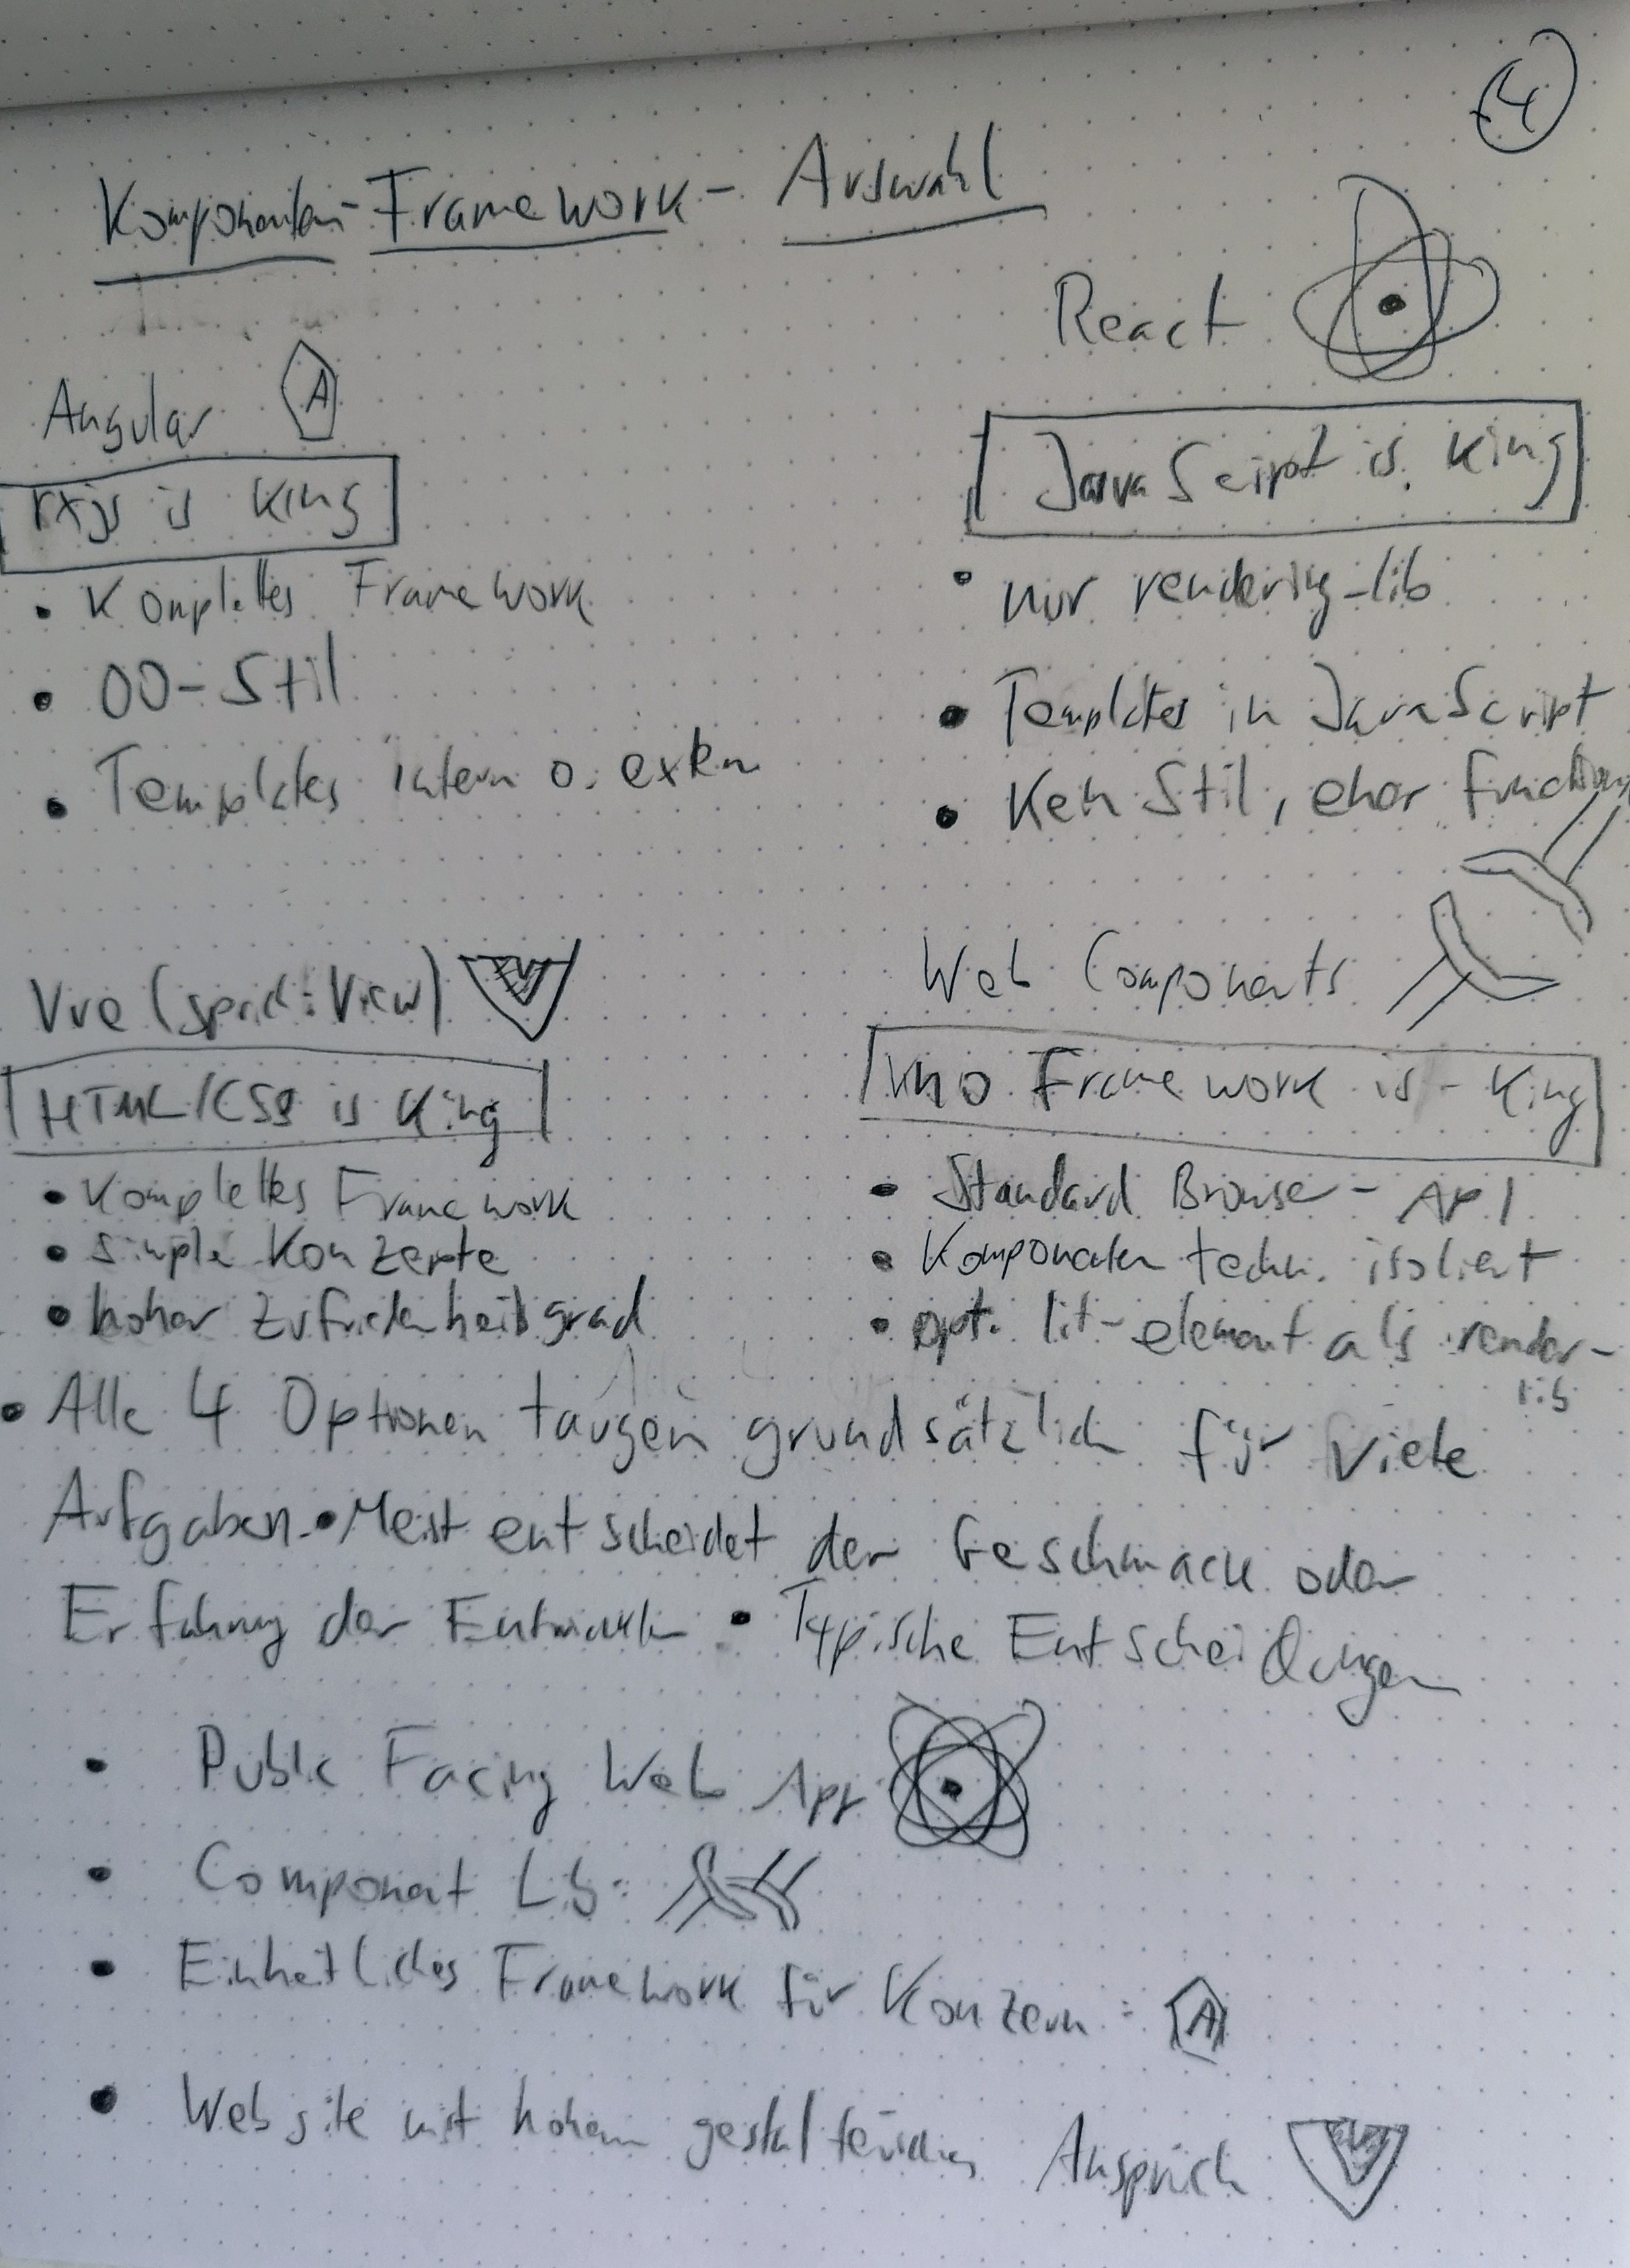 4
Komponenten-Framework-Auswahl
Angular A
rxjs is King
• Komplettes Framework
• OO-Stil
• Templates intern o. extern
React
JavaScript is King
• nur rendering-lib
• Templates in JavaScript
• Kein Stil, eher
Vue (sprich: View)
HTML/CSS is King
• Komplettes Framework
• simple Konzepte
• hoher Zufriedenheitsgrad
Web Components
no Framework is King
• Standard Browser-API
• Komponenten techn. isoliert
• opt. lit-element als render-
lib
• Alle 4 Optionen taugen grundsätzlich für viele
Aufgaben. • Meist entscheidet der Geschmack oder
Erfahrung der Entwickler • Typische Entscheidungen
• Public Facing Web App
• Component Lib:
• Einheitliches Framework für Konzern: A
• Website mit hohem gestalterischen Anspruch